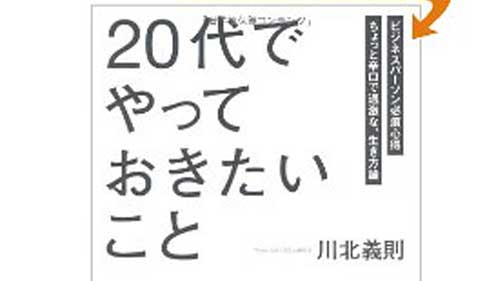 20代で
やって
おきたい
こと
ビジネスパーソン必須心得
ちょっと辛口で過激な、生き方論
川北義則